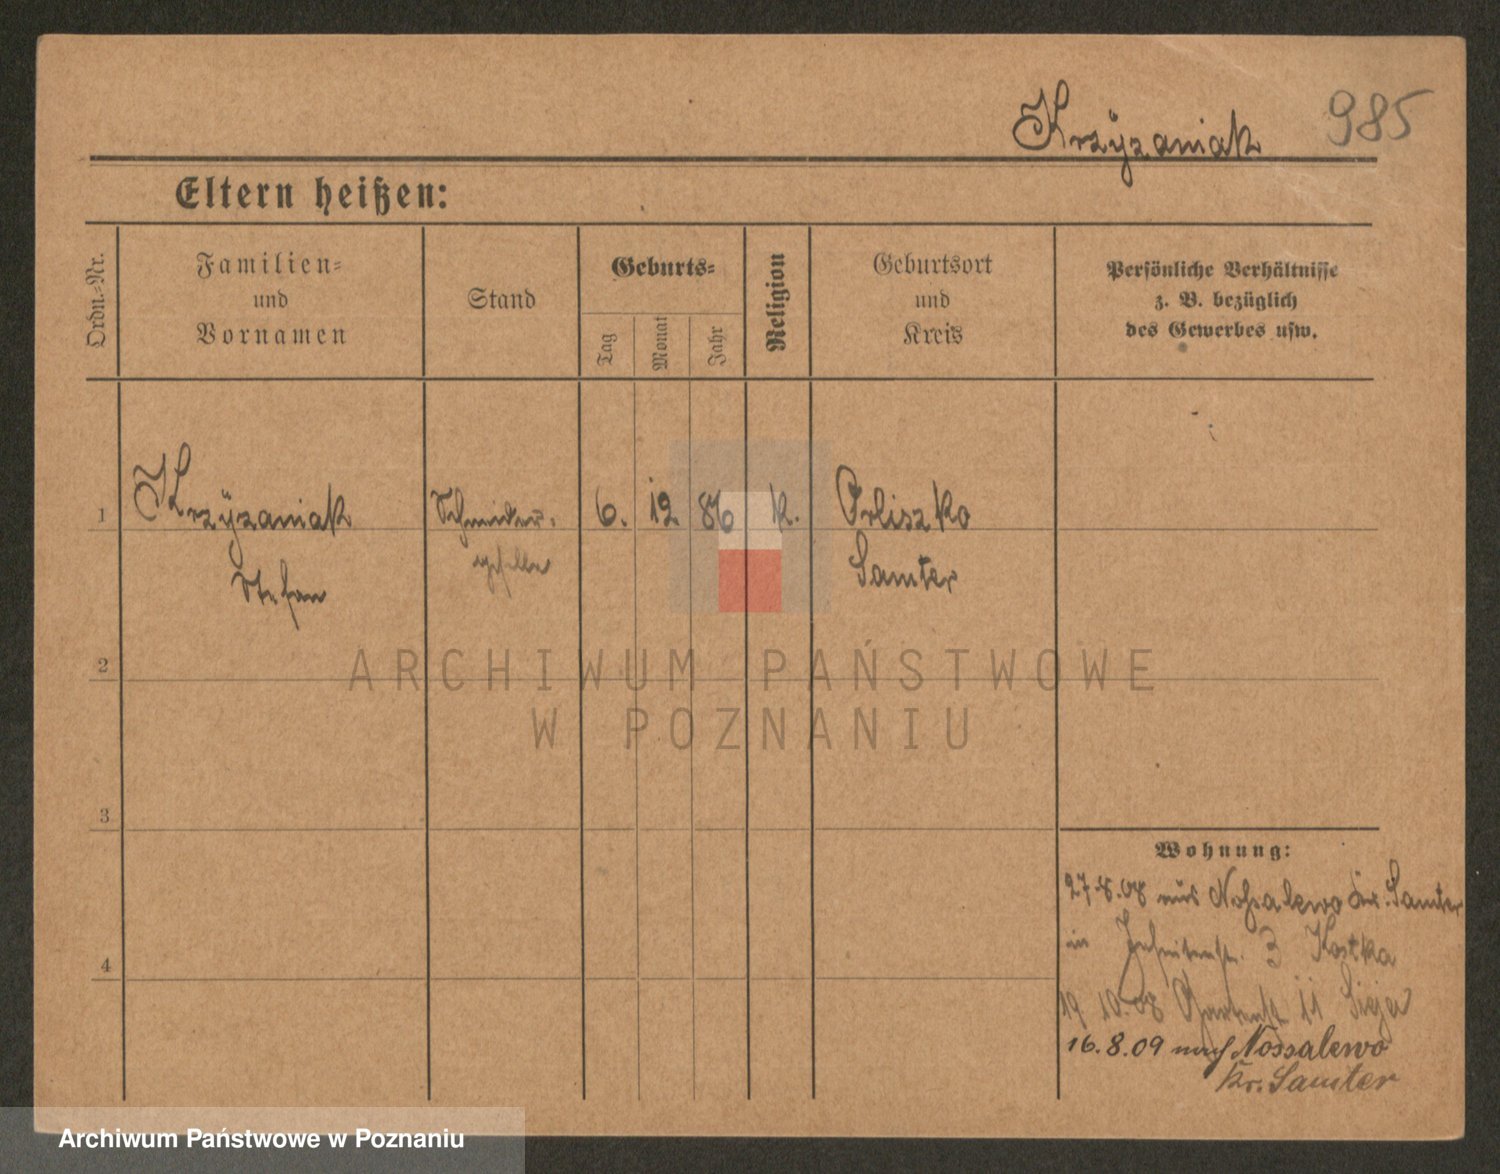 Krzÿzaniak 985
Eltern heißen:
Ordn.-Nr.
Familien-
und
Vornamen
Stand
Geburts-
Tag
Monat
Jahr
Religion
Geburtsort
und
Kreis
Persönliche Verhältnisse
z. B. bezüglich
des Gewerbes usw.
1 Krzÿzaniak Schneider- 6. 12. 86 k. Orliszko
geselle
Stefan Samter
ARCHIWUM PAŃSTWOWE
W POZNANIU
2
3
4
Wohnung:
27.8.08 aus Nossalewo Kr. Samter
in Jesuitenstr. 3 Kostka
19 10.08 11
16.8.09 nach Nossalewo
Kr. Samter
Archiwum Państwowe w Poznaniu